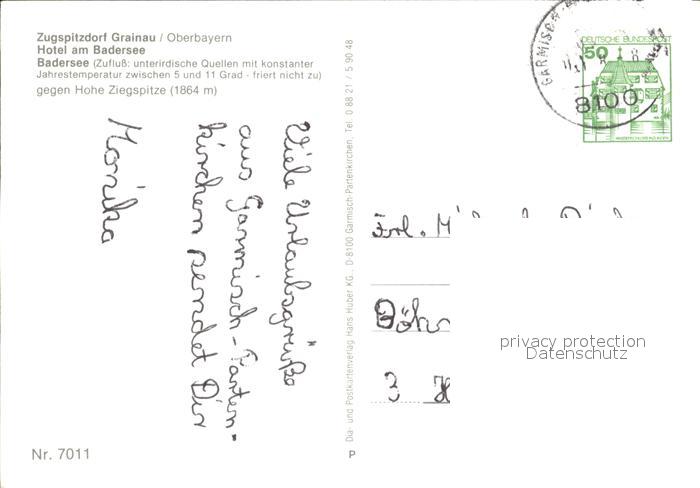 Zugspitzdorf Grainau / Oberbayern
Hotel am Badersee
Badersee (Zufluß: unterirdische Quellen mit konstanter
Jahrestemperatur zwischen 5 und 11 Grad - friert nicht zu)
gegen Hohe Ziegspitze (1864 m)
Viele Urlaubsgrüße
aus Garmisch-Parten-
kirchen sendet Dir
Monika
Nr. 7011
Dia- und Postkartenverlag Hans Huber KG., D-8100 Garmisch-Partenkirchen, Tel. 0 88 21 / 5 90 48
P
GARMISCH-
8100
DEUTSCHE BUNDESPOST
50
Frl. M
Böh
3
privacy protection
Datenschutz